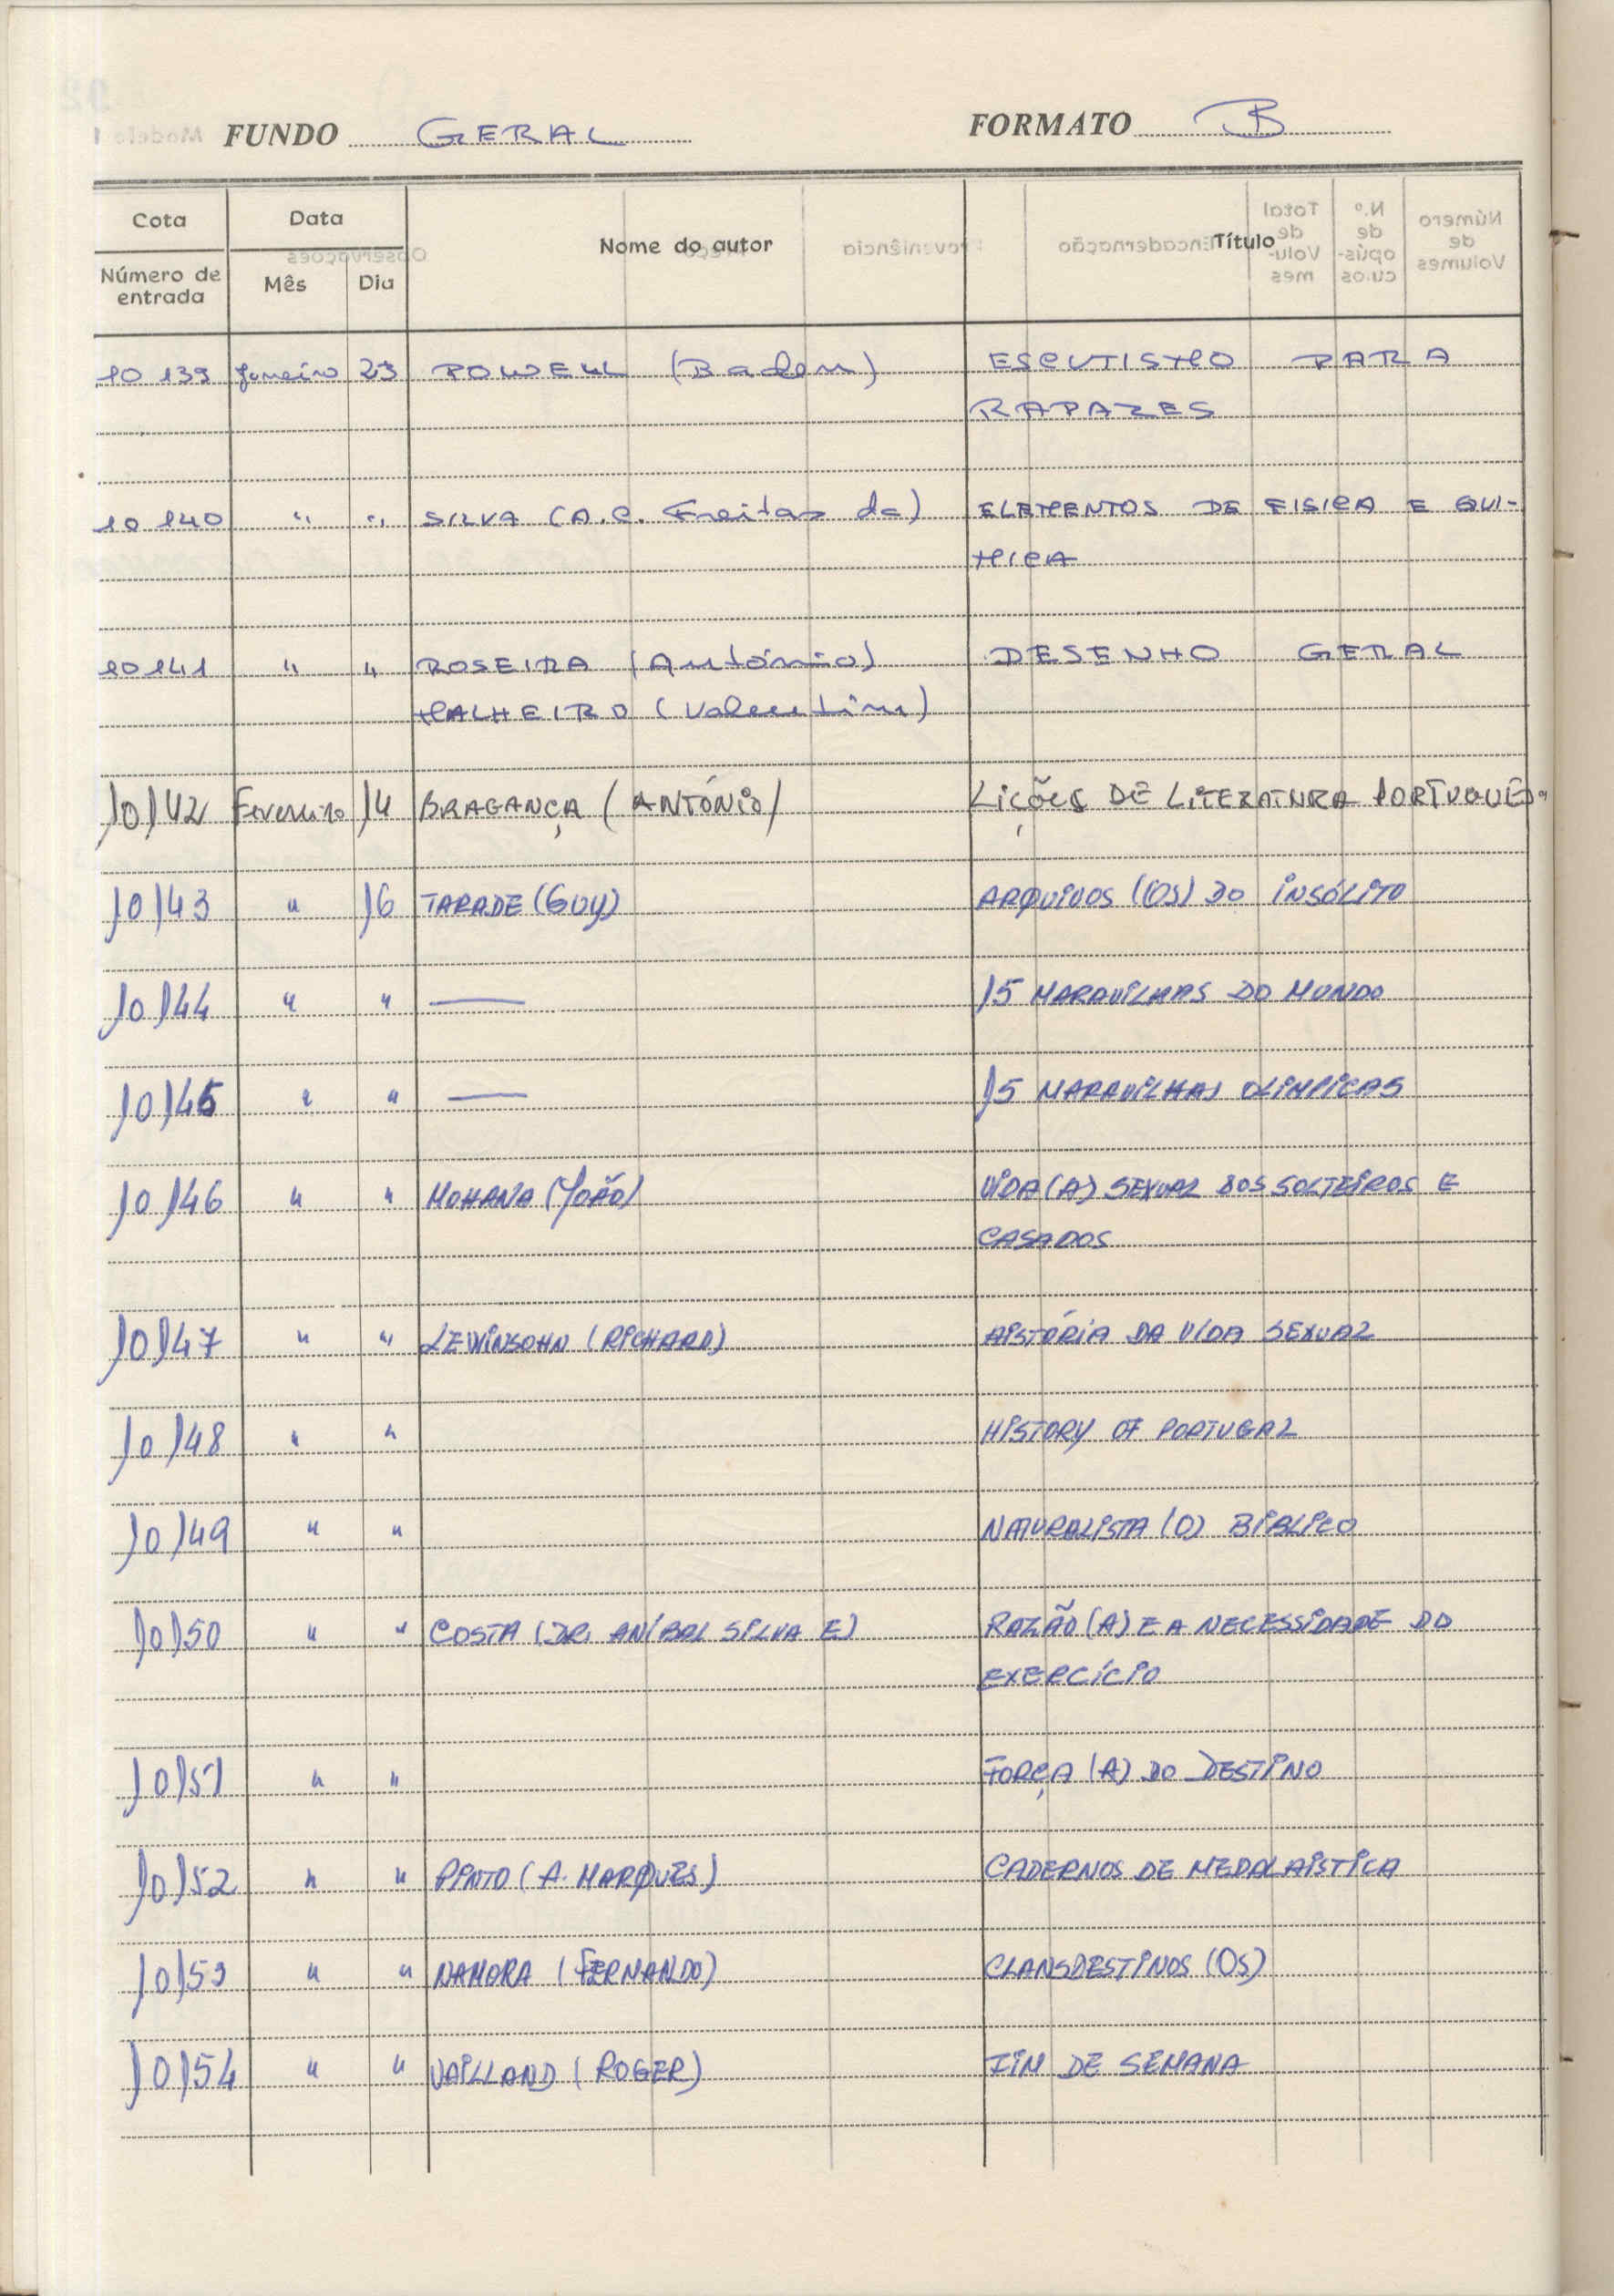 FUNDO GERAL FORMATO B
Cota Data Nome do autor Título
Número de entrada Mês Dia
10 139 Janeiro 23 POWELL (Baden) ESCUTISMO PARA
RAPAZES
10 140 " " SILVA (A.C. Freitas da) ELEMENTOS DE FISICA E QUI-
MICA
10 141 " " ROSEIRA (António) DESENHO GERAL
MALHEIRO (Valentim)
10142 Fevereiro 14 BRAGANÇA (ANTÓNIO) LIÇÕES DE LITERATURA PORTUGUÊSA
10143 " 16 TARADE (GUY) ARQUIVOS (OS) DO INSÓLITO
10144 " " — 15 MARAVILHAS DO MUNDO
10145 " " — 15 MARAVILHAS OLIMPICAS
10146 " " MOHANA (JOÃO) VIDA (A) SEXUAL DOS SOLTEIROS E
CASADOS
10147 " " LEWINSOHN (RICHARD) HISTÓRIA DA VIDA SEXUAL
10148 " " HISTORY OF PORTUGAL
10149 " " NATURALISTA (O) BIBLICO
10150 " " COSTA (DR. ANÍBAL SILVA E) RAZÃO (A) E A NECESSIDADE DO
EXERCÍCIO
10151 " " FORÇA (A) DO DESTINO
10152 " " PINTO (A. MARQUES) CADERNOS DE MEDALHISTICA
10153 " " NAMORA (FERNANDO) CLANSDESTINOS (OS)
10154 " " VAILLAND (ROGER) FIM DE SEMANA